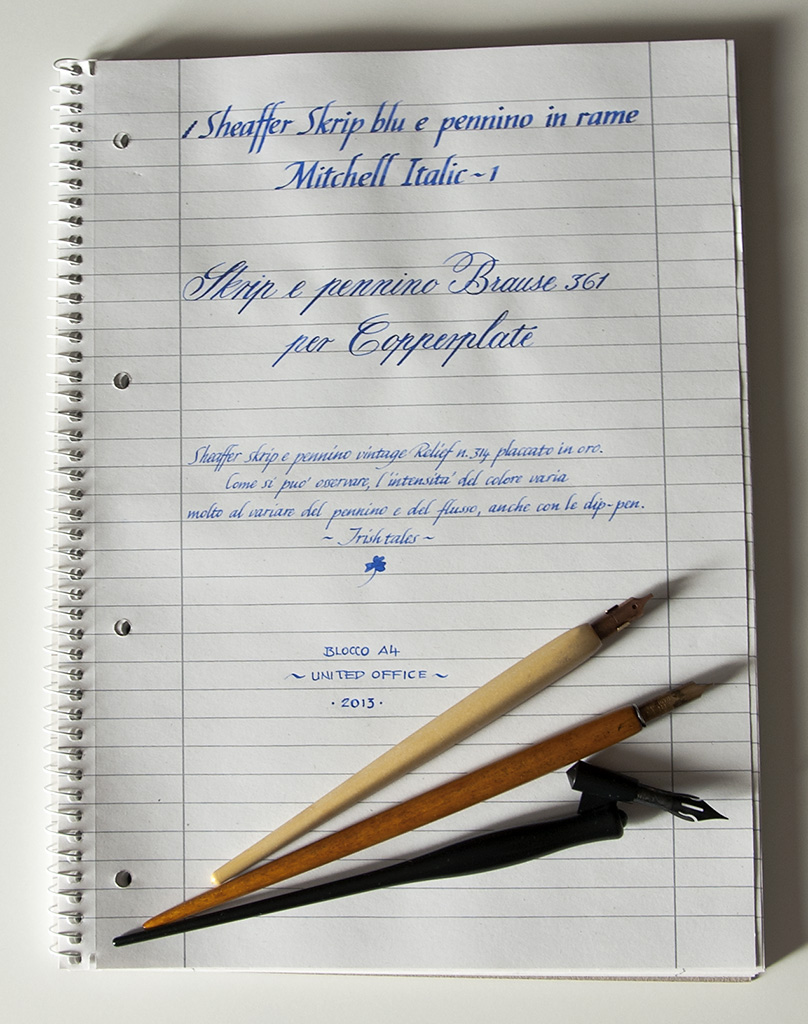 Sheaffer Skrip blu e pennino in rame
Mitchell Italic ~ 1
Skrip e pennino Brause 361
per Copperplate
Sheaffer skrip e pennino vintage Relief n. 314 placcato in oro.
Come si puo' osservare, l'intensita' del colore varia
molto al variare del pennino e del flusso, anche con le dip-pen.
~ Irishtales ~
BLOCCO A4
~ UNITED OFFICE ~
· 2013 ·